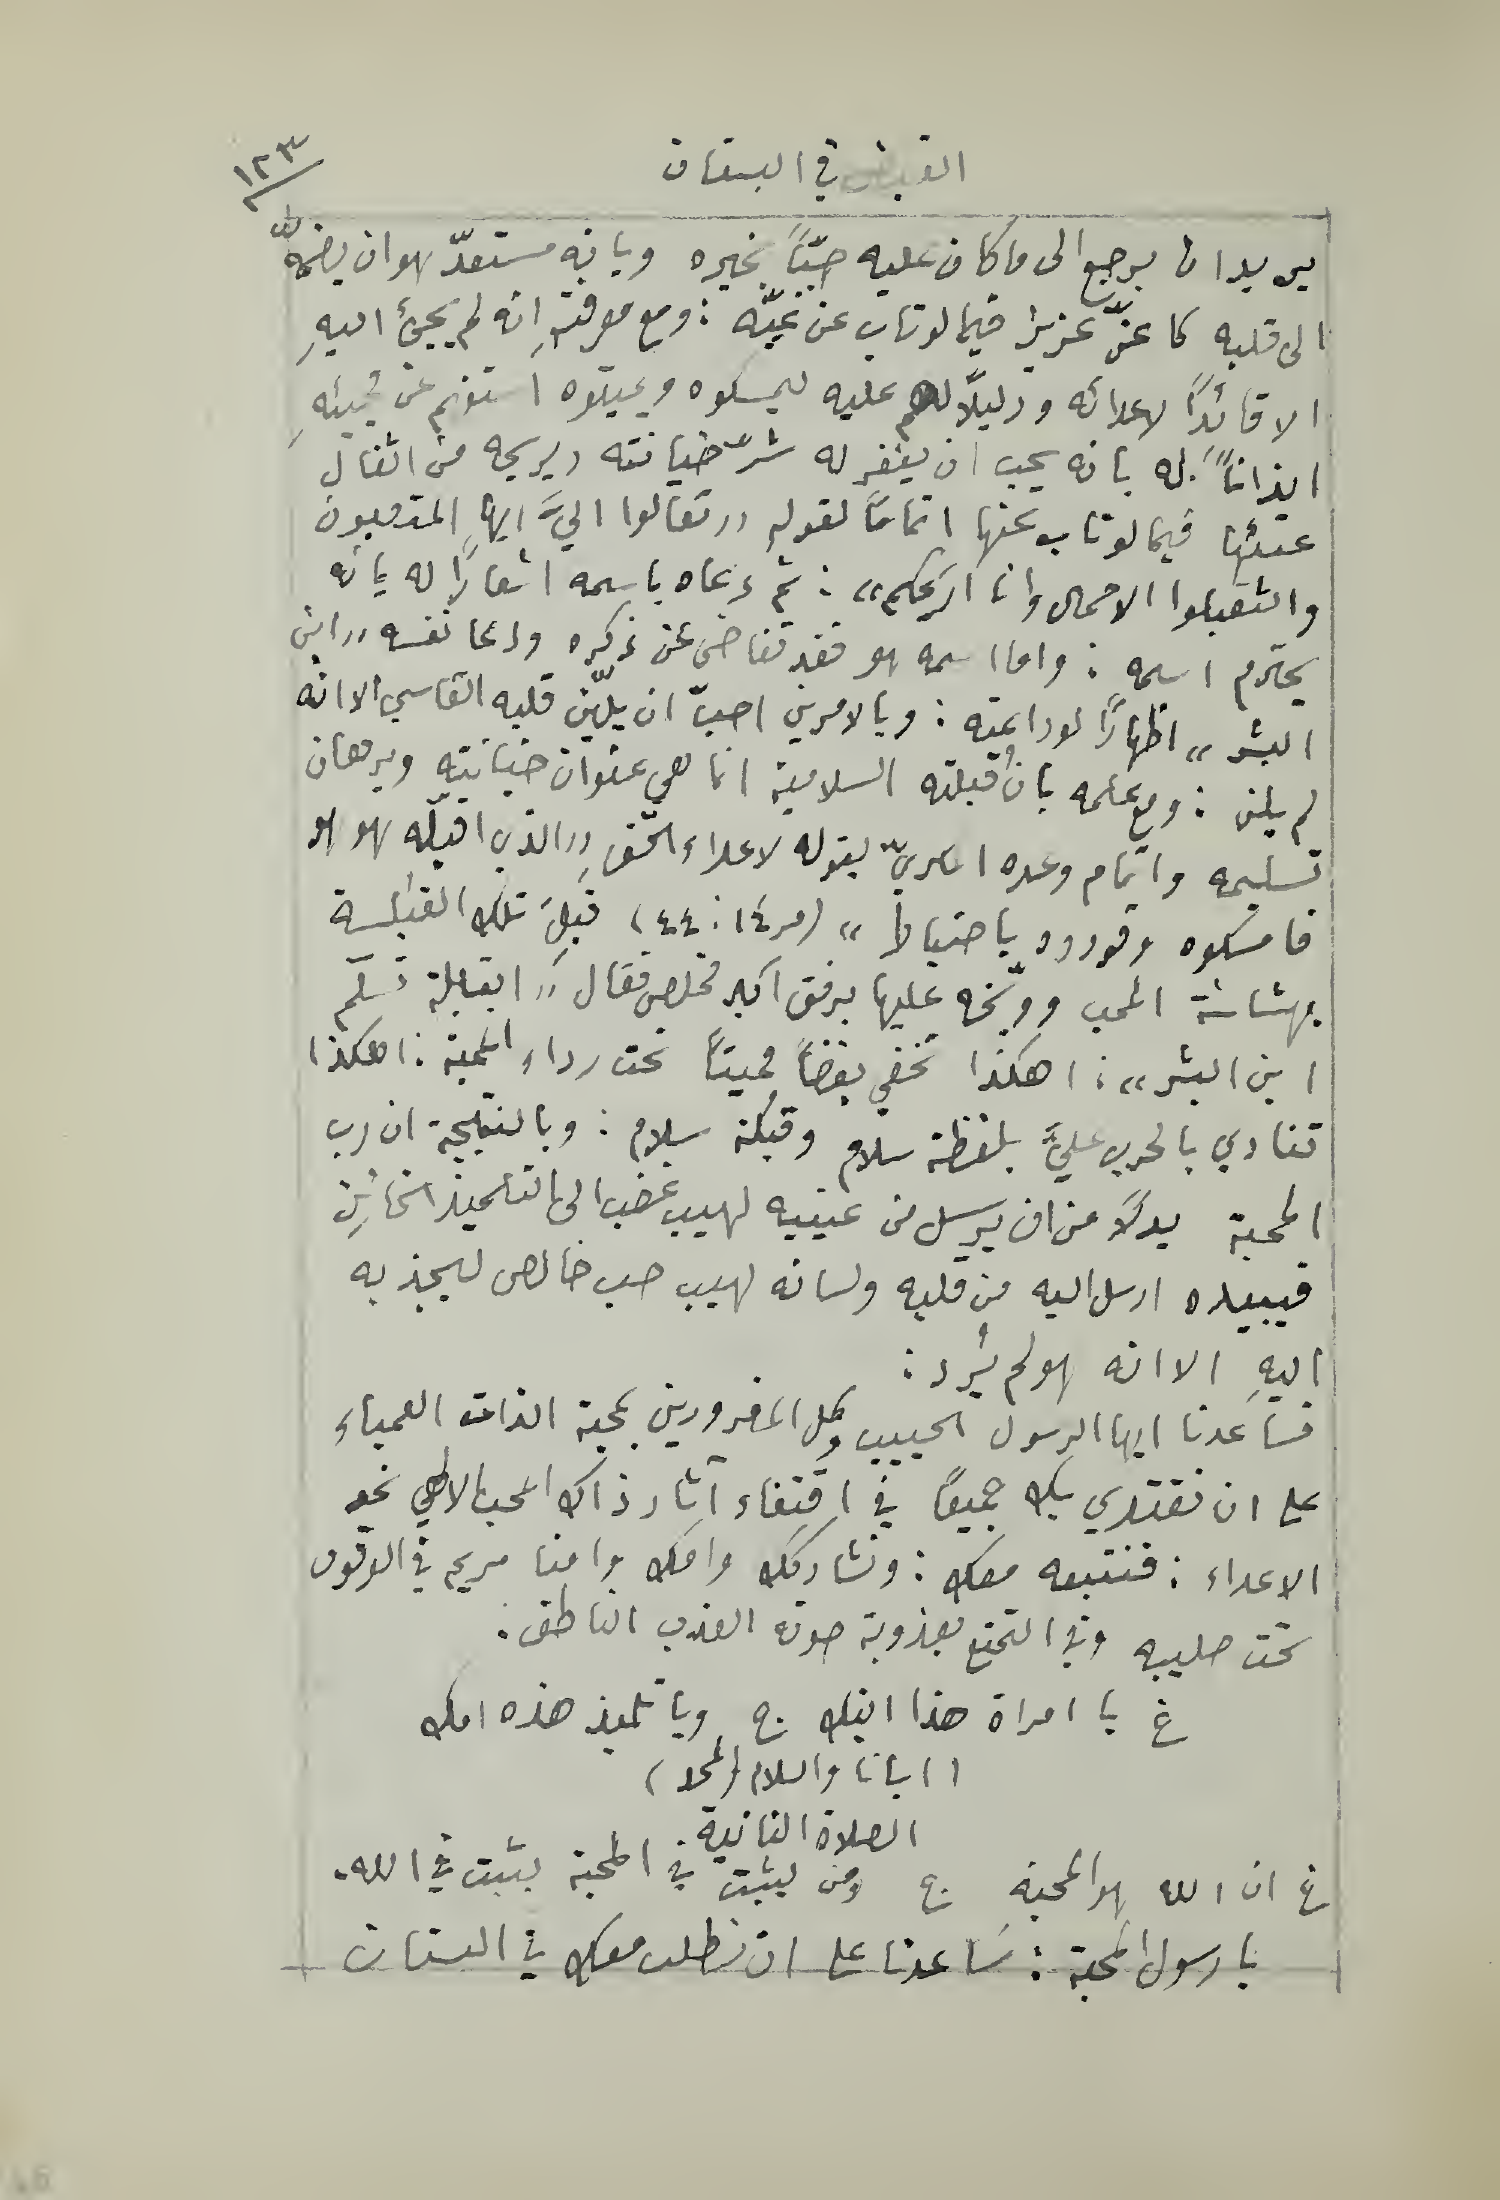 ١٢٣
القبض في البستان
يريد ان يرجع الى ما كان عليه حبًّا بخيره وبانه مستعدّ هو ان يضمّه
الى قلبه كاعزّ عزيز فيما لو تاب عن غيّه : ومع معرفتهِ انه لم يجئ اليهِ
الا قائدًا لاعدائه ودليلًا لهم عليه ليمسكوه ويميتوه استفهم عن مجيئهِ
ايذانًا له بانه يحب ان يغفر له شرّ خيانته ويريحه من اثقال
عبئها فيما لو تاب عنها اتمامًا لقولهِ «تعالوا اليَّ ايها المتعبون
والثقيلوا الاحمال وانا اريحكم» : ثم دعاه باسمه اشعارًا له بانه
يحترم اسمه : واما اسمه هو فقد تغاضى عن ذكره ودعا نفسه «ابن
البشر» اظهارًا لوداعته : وبالامرين احبّ ان يليّن قلبه القاسي الا انه
لم يلن : ومع علمه بان قبلته السلامية انما هي عنوان خيانتهِ وبرهان
تسليمه واتمام وعده السريّ بقوله لاعداء الحق «الذي اقبّله هو هو
فامسكوه وقودوه باحتياط» (مر ١٤ : ٤٤) قبِلَ تلك القبلة
بهشاشة المحب ووبّخه عليها برفق اكبر مخلص فقال «ابقبلة تسلّم
ابن البشر» : اهكذا تخفي بغضًا مميتًا تحت رداء المحبة : اهكذا
تنادي بالحرب عليَّ بلفظة سلام وقبلة سلام : وبالنتيجة ان رب
المحبة بدلًا من ان يرسل من عينيه لهيب غضب الى التلميذ الخائن
فيبيده ارسل اليه من قلبه ولسانه لهيب حب خالص ليجذبه
اليهِ الا انه هو لم يُرِد :
فساعدنا ايها الرسول الحبيب وكل المغرورين بمحبة الذات العمياء
على ان نقتدي بك جميعًا في اقتفاء آثار ذاك المحب الالهي نحو
الاعداء : فنتبعه معك : ونشاركك وامك وامنا مريم في الوقوف
تحت صليبه وفي التمتع بعذوبة صوته العذب الناطق :
غ يا امراة هذا ابنك ج ويا تلميذ هذه امك
١ ابانا والسلام (المجد)
الصلاة الثانية
غ ان الله هو المحبة ج ومن يثبت في المحبة يثبت في الله .
يا رسول المحبة : ساعدنا على ان نطلب معك في البستان